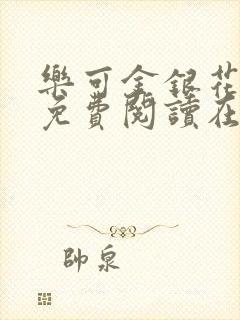 樂可金銀花
免費閱讀在
帥泉